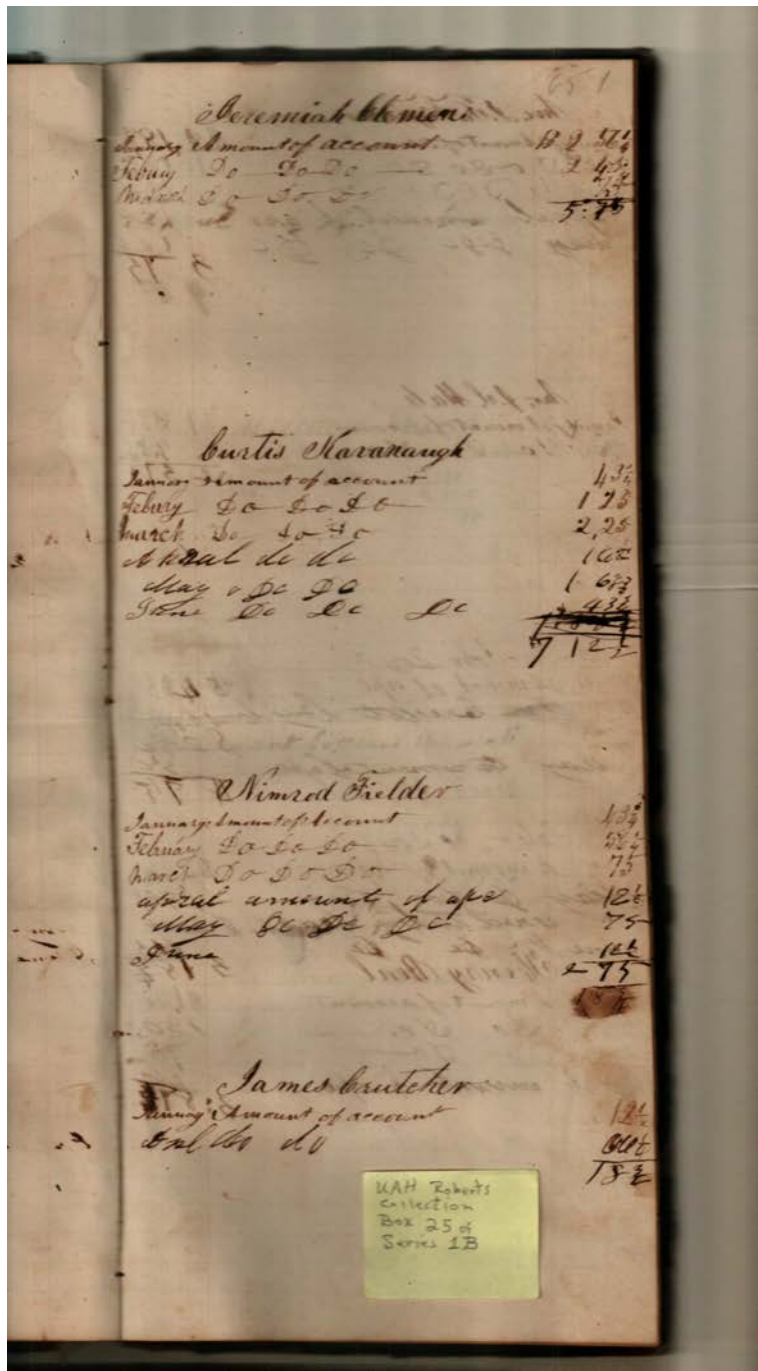 Jeremiah Clemens
January Amount of account 2
Febuary Do Do Do 2
March Do Do Do
5.75
Curtis Kavanaugh
January Amount of account 43¾
Febuary Do Do Do 1 25
March Do Do Do 2,25
Apral do do
May Do Do 1
June Do Do Do 43¾
7 12½
Nimrod Fielder
January Amount of Account 43¾
February Do Do Do 56¼
March Do Do Do 75
apral amount of apc 12½
May Do Do Do 75
June 12½
2 75
James Crutcher
January Amount of account 12½
do do
18¾
UAH Roberts
Collection
Box 25 of
Series 1B